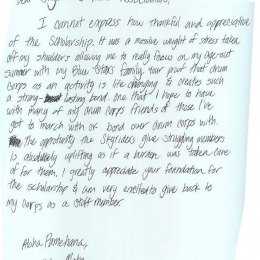 I cannot express how thankful and appreciative
of the Scholarship. It was a massive weight of stress taken
off my shoulders allowing me to really focus on my age-out
summer with my Blue Stars family. Your proof that drum
corps as an activity is life changing to creates such
a strong lasting bond. One that I hope to have
with many of my drum corps friends of those I've
got to march with or bond over drum corps with.
The opportunity the Skyriders give struggling members
is absolutely uplifting as if a burden was taken care
of for them. I greatly appreciate your foundation for
the scholarship & am very excited to give back to
my corps as a staff member.
Aloha Pumehana,